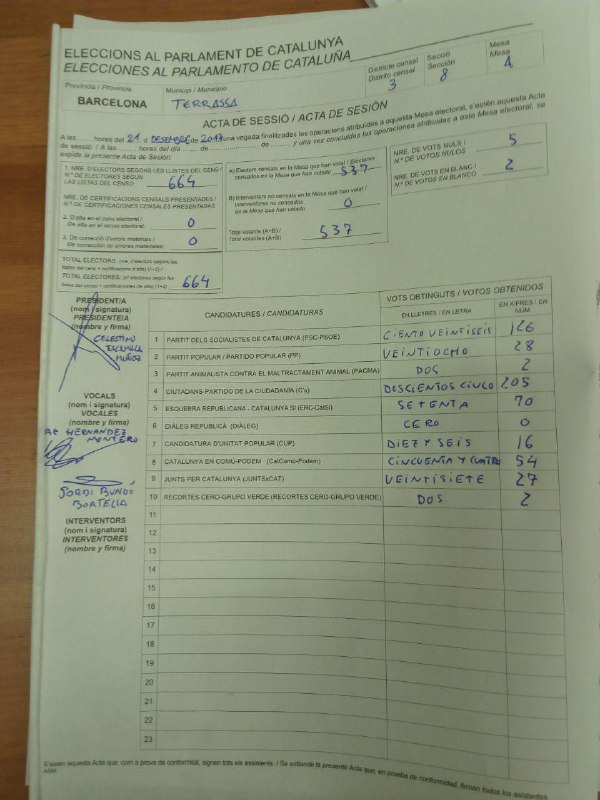 ELECCIONS AL PARLAMENT DE CATALUNYA
ELECCIONES AL PARLAMENTO DE CATALUÑA
Província / Provincia
BARCELONA
Municipi / Municipio
TERRASSA
Districte censal
Distrito censal
3
Secció
Sección
8
Mesa
Mesa
A
ACTA DE SESSIÓ / ACTA DE SESIÓN
A les ...... hores del 21 d DESEMBRE de 2017 una vegada finalitzades les operacions atribuïdes a aquesta Mesa electoral, s'estén aquesta Acta
de sessió: / A las ...... horas del día ...... de ...... de ...... y una vez concluidas las operaciones atribuidas a esta Mesa electoral, se
expide la presente Acta de Sesión:
1. NRE. D'ELECTORS SEGONS LES LLISTES DEL CENS /
N.º DE ELECTORES SEGÚN
LAS LISTAS DEL CENSO
664
NRE. DE CERTIFICACIONS CENSALS PRESENTADES /
N.º DE CERTIFICACIONES CENSALES PRESENTADAS
2. D'alta en el cens electoral /
De alta en el censo electoral:
0
3. De correcció d'errors materials /
De corrección de errores materiales:
0
TOTAL ELECTORS: (nre. d'electors segons les
llistes del cens + certificacions d'alta) (1+2) /
TOTAL ELECTORES: (nº electores según las
listas del censo + certificaciones de alta) (1+2)
664
A) Electors censats en la Mesa que han votat / Electores
censados en la Mesa que han votado
537
B) Interventors no censats en la Mesa que han votat /
Interventores no censados
en la Mesa que han votado
0
Total votants (A+B) /
Total votantes (A+B)
537
NRE. DE VOTS NULS /
N.º DE VOTOS NULOS
5
NRE. DE VOTS EN BLANC /
N.º DE VOTOS EN BLANCO
2
PRESIDENT/A
(nom i signatura)
PRESIDENTE/A
(nombre y firma)
CELESTINO
ESCAMILLA
MUÑOZ
VOCALS
(nom i signatura)
VOCALES
(nombre y firma)
HERNANDEZ
MONTERO
JORDI BUNDÓ
BOATELLA
INTERVENTORS
(nom i signatura)
INTERVENTORES
(nombre y firma)
CANDIDATURES / CANDIDATURAS
VOTS OBTINGUTS / VOTOS OBTENIDOS
EN LLETRES / EN LETRA
EN XIFRES / EN NÚM.
1 PARTIT DELS SOCIALISTES DE CATALUNYA (PSC-PSOE) CIENTO VEINTISEIS 126
2 PARTIT POPULAR / PARTIDO POPULAR (PP) VEINTIOCHO 28
3 PARTIT ANIMALISTA CONTRA EL MALTRACTAMENT ANIMAL (PACMA) DOS 2
4 CIUTADANS-PARTIDO DE LA CIUDADANÍA (C's) DOSCIENTOS CINCO 205
5 ESQUERRA REPUBLICANA - CATALUNYA SÍ (ERC-CatSí) SETENTA 70
6 DIÀLEG REPUBLICÀ (DIÀLEG) CERO 0
7 CANDIDATURA D'UNITAT POPULAR (CUP) DIEZ Y SEIS 16
8 CATALUNYA EN COMÚ-PODEM (CatComú-Podem) CINCUENTA Y CUATRO 54
9 JUNTS PER CATALUNYA (JUNTSxCAT) VEINTISIETE 27
10 RECORTES CERO-GRUPO VERDE (RECORTES CERO-GRUPO VERDE) DOS 2
11
12
13
14
15
16
17
18
19
20
21
22
23
S'estén aquesta Acta que, com a prova de conformitat, signen tots els assistents. / Se extiende la presente Acta que, en prueba de conformidad, firman todos los asistentes.